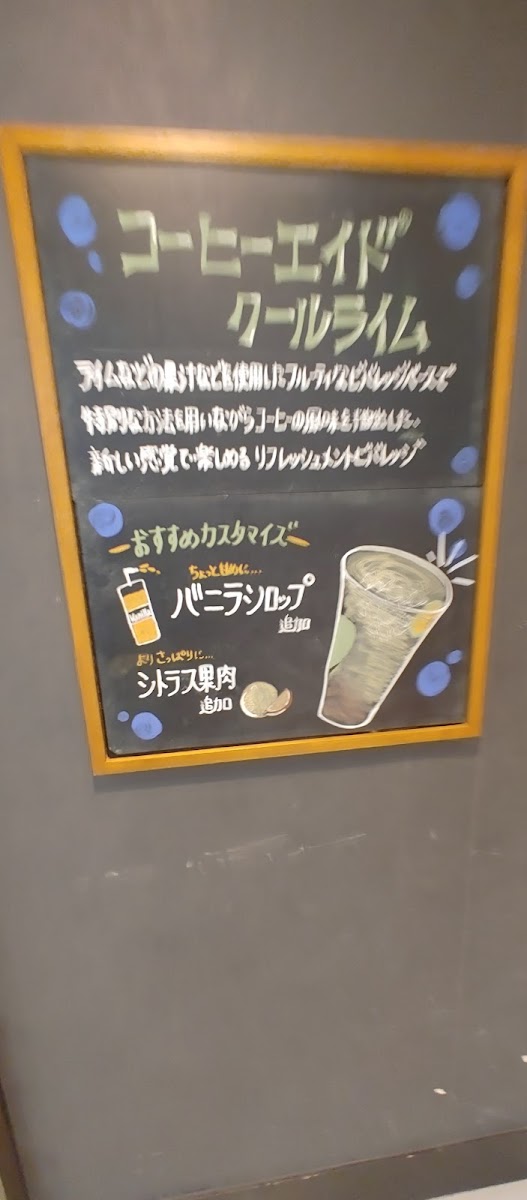 コーヒーエイド®
クールライム
ライムなどの果汁などを使用したフルーティなビバレッジベースで
特別な方法を用いながらコーヒーの風味を抽出した、
新しい感覚で楽しめる リフレッシュメントビバレッジ
おすすめカスタマイズ
ちょっと甘めに...
Vanilla
バニラシロップ
追加
よりさっぱりに...
シトラス果肉
追加